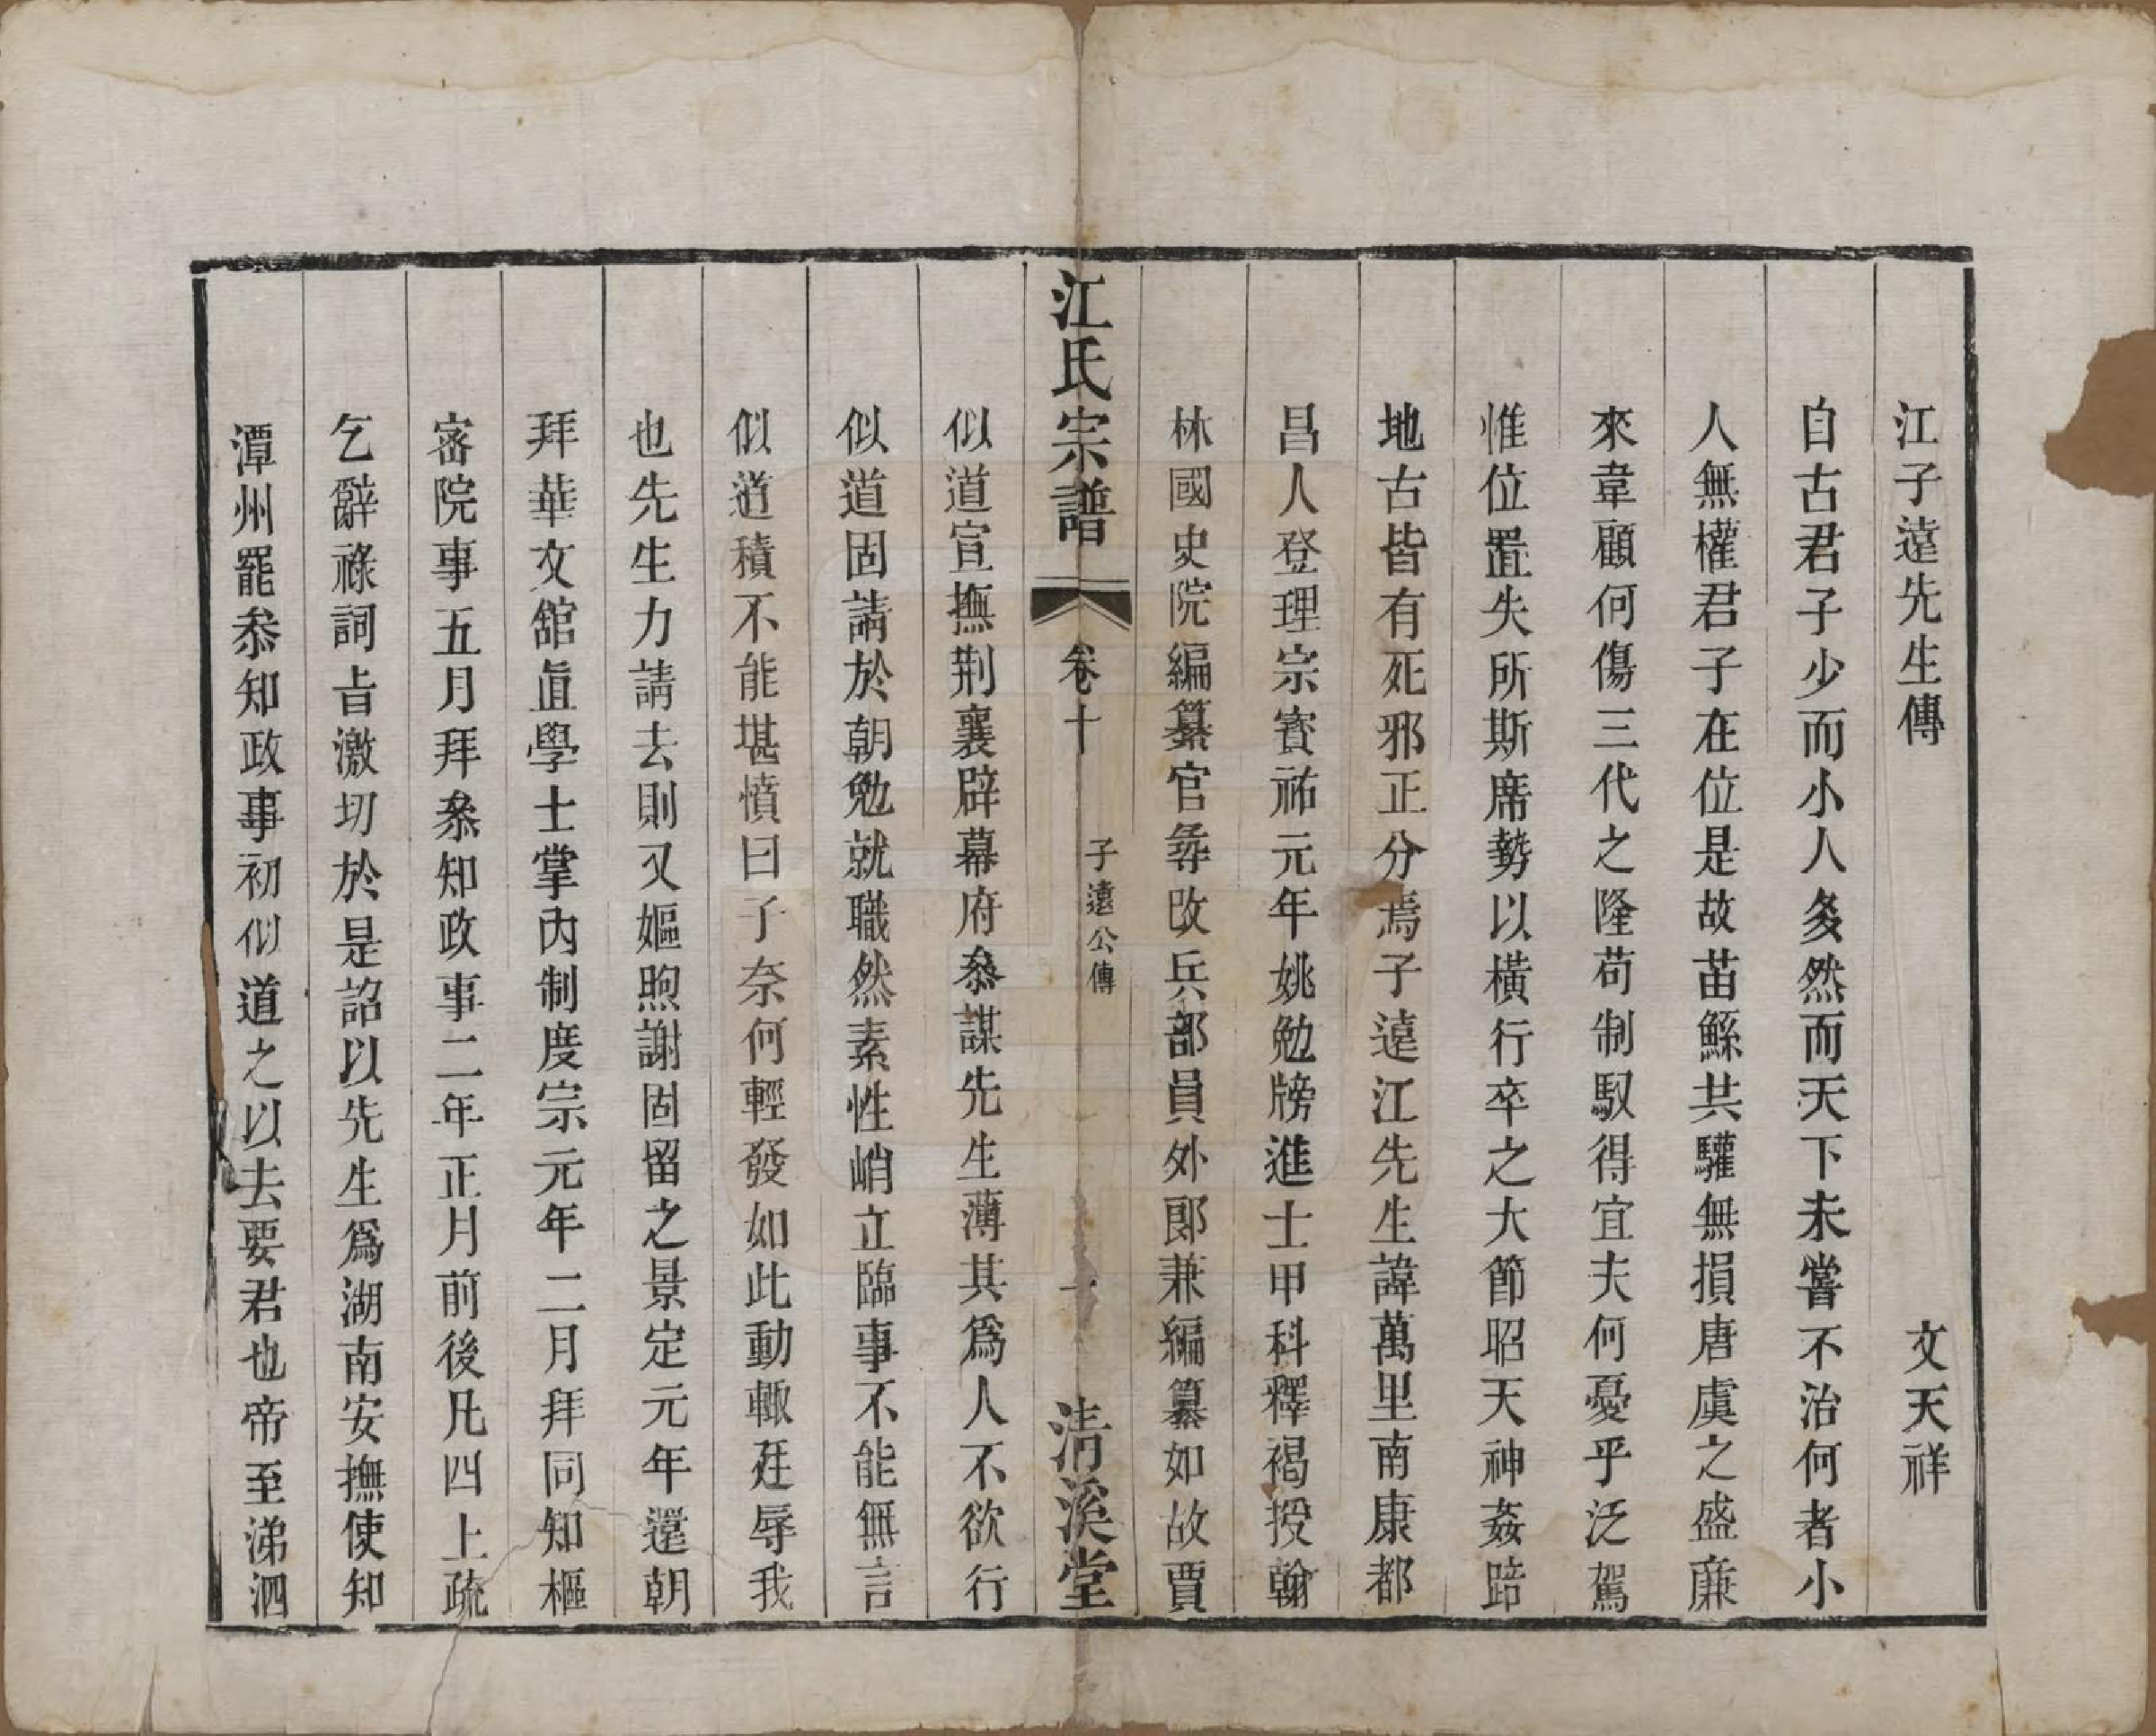 江子遠先生傳　文天祥
自古君子少而小人多然而天下未嘗不治何者小
人無權君子在位是故苗鯀共驩無損唐虞之盛廉
來韋顧何傷三代之隆苟制馭得宜夫何憂乎泛駕
惟位置失所斯席勢以橫行卒之大節昭天神姦踣
地古皆有死邪正分焉子遠江先生諱萬里南康都
昌人登理宗寳祐元年姚勉牓進士甲科釋褐授翰
林國史院編纂官彞改兵部員外郎兼編纂如故賈
江氏宗譜　卷十　子遠公傳　一　清溪堂
似道宣撫荆襄辟幕府叅謀先生薄其爲人不欲行
似道固請於朝勉就職然素性峭立臨事不能無言
似道積不能堪憤曰子奈何輕發如此動輙廷辱我
也先生力請去則又嫗煦謝固留之景定元年還朝
拜華文舘直學士掌內制度宗元年二月拜同知樞
密院事五月拜叅知政事二年正月前後凡四上疏
乞辭祿詞旨激切於是詔以先生爲湖南安撫使知
潭州罷叅知政事初似道之以去要君也帝至涕泗